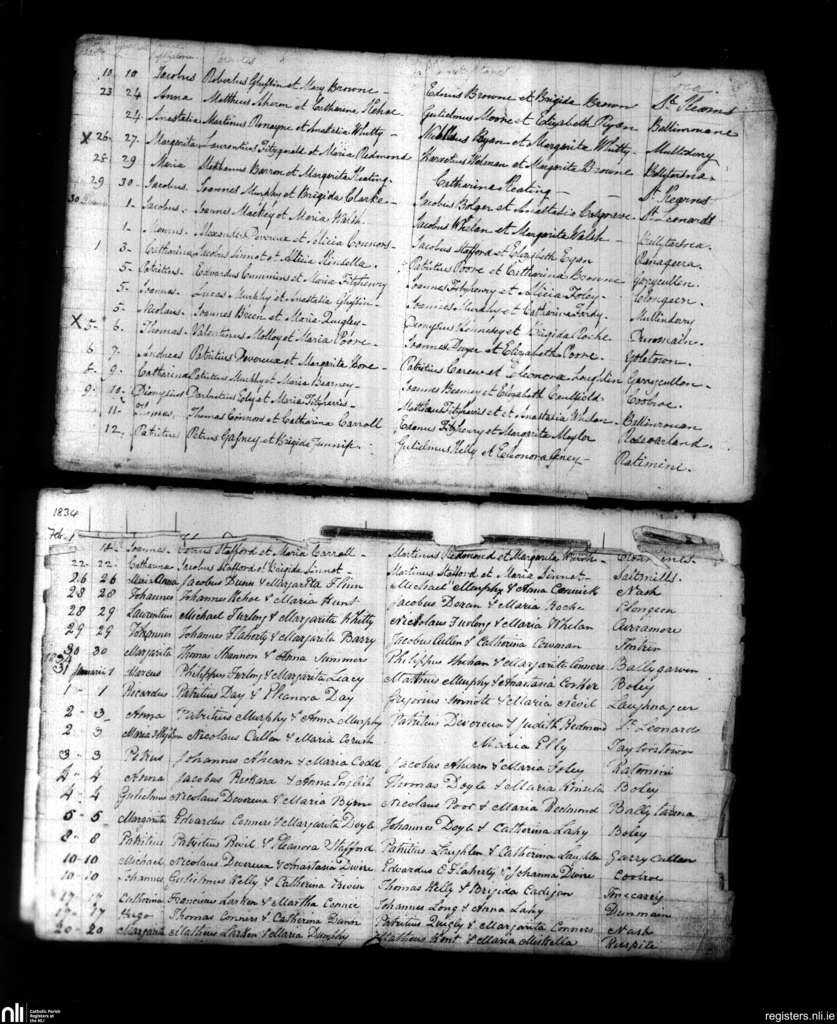 10 10 Jacobus Robertus Ghyslin et Mary Browne - Edmus Browne et Brigida Brown St. Kearns
23 24 Anna Matthius Aheron et Catharina Kehoe Gulielmus Moore et Elizabeth Ryan Ballinruane
24 Anastatia Martinus Ronayne et Anastatia Whitty - Nicholaus Ryan et Margarita Whitty - Multedury
X 26 27. Margarita Laurentius Fitzgerald et Maria Redmond Margarita Browne Ballytarsna
28 29 Maria Barron et Margarita Keating - Catharine Keating - St. Kearns
29 30 - Jacobus Joannes Murphy et Brigida Clarke - Jacobus Bolger et Anastatia Cosgrave St. Leonards
30 1 - Jacobus Joannes Mackey et Maria Walsh Jacobus Whelan et Margarita Walsh - Ballytarsna.
1 - Alexander Devereux et Alicia Connors - Jacobus Stafford et Elizabeth Egan
1 3 - Catharina Jacobus Sinnot et Alicia Kinsella. Patritius Poore et Catharina Browne Garycullen.
5 - Patritius Edvardus Cummins et Maria Fitzhenry Joannes Fitzhenry et Alicia Foley - Clongeen.
5 - Joannes Lucas Murphy et Anastatia Ghyslin - Joannes Murphy et Catharina
5 - Nicolaus Joannes Breen et Maria Quigley - Dionysius Hennessy et Brigida Roche Dunmain.
X 5 - 6. Thomas - Valentinus Molloy et Maria Poore Joannes Dwyer et Elizabeth Poore.
6 7. Andreas Patritius Devereux et Margarita Hore - Patritius Carew et Eleonora Laughlin Garrycullen -
9. Catharina Patritius Murphy et Maria Bearney - Joannes Bearney et Elizabeth Caulfield Coolroe.
9. 10 - Dionysius Foley et Maria Fitzharris - Mattheus Fitzharris et Anastatia Whelan. Ballinruan
11 - Thomas. Thomas Connors et Catharina Carroll Edmus Fitzhenry et Margarita Meyler
12. Patritius Petrus Gafney et Brigida Gulielmus Kelly et Eleonora Ratimine.
1834
Feb. 1
18 - Joannes. Stafford et Maria Carroll - Martinus Redmond et Margarita
22 - 22 - Catharina Jacobus Stafford et Brigida Sinnot - Martinus Stafford et Maria Sinnot - Saltmills.
26 26 Maria Anna Jacobus Dunn & Margarita Flinn Michael Murphy & Anna Nash
28 28 Johannes Johannes Kehoe & Maria Hunt Jacobus Doran & Maria Roche Clongeen
28 29 Laurentius Michael Furlong & Margarita Whitty Nicolaus Furlong & Maria Whelan Curramore
29 29 Johannes Johannes Flaherty & Margarita Barry Jacobus Cullen & Catharina Tintern
30 30 Margarita Thomas Shannon & Anna Summers Philippus & Margarita Conners Ballygarvin
1834
31 Januarii 1 Marcus Philippus Furlong & Margarita Lacy Matthius Murphy & Anastasia Boley
1 - 1 Ricardus Patritius Day & Eleanora Day Gregorius & Maria Nevil Laughnager
2 - 3 Anna Patritius Murphy & Anna Murphy Patritius Devereux & Judith Redmond St. Leonards
2 3 Nicolaus Cullen & Maria Maria Elly Taylorstown
3 - 3 Petrus Johannes Ahearn & Maria Codd Jacobus Ahearn & Maria Foley Ratimein
4 - 4 Anna Jacobus Rickard & Anna English Thomas Doyle & Maria Kinsela Boley
4 - 4 Gulielmus Nicolaus Devereux & Maria Byrn Nicolaus Poor & Maria Redmond Ballytarsna
5 - 5 Margarita Edvardus Conners & Margarita Doyle Johannes Doyle & Catherina Lahy Boley
8 - 8 Patritius Patritius Boil & Eleanora Stafford Patritius Laughlen & Catherina Laughlen Garry Cullen
10 - 10 Michael Nicolaus Devereux & Anastasia Dwire Edvardus O Flaherty & Johanna Dwire Coolroe
10 - 10 Johannes Gulielmus Kelly & Catherina Thomas Kelly & Brigida Cadigan
17 - 17 Catherina Franciscus Larken & Martha Conner Johannes Long & Anna Lahy Dunmain
17 - 17 Hugo Thomas Conners & Catherina Dunn Patritius Quigly & Margarita Conners Nash
20 - 20 Margarita Matheus Larken & Maria Dunphy Matheus Kent & Maria
nli Catholic Parish
Registers at
the NLI
registers.nli.ie